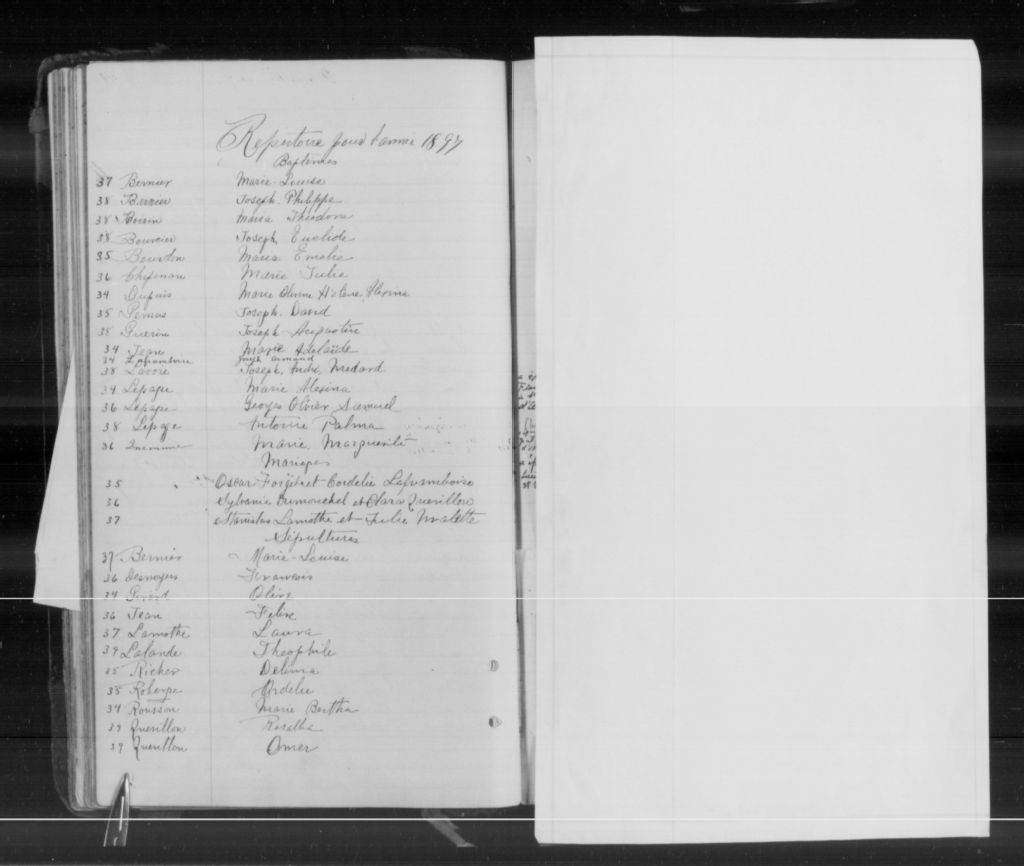 Repertoire pour l'annee 1897
Baptemes
37 Bernier Marie-Louise
38 Bernier Joseph. Philippe
38 Maria Theodora
38 Bourcier Joseph, Euclide
35 Bourdon Maria Emelie
36 Marie Julie
34 Dupuis Marie Helene Alexina
35 Joseph. David
38 Guerin Joseph Augustin
34 Jean Marie Adelaïde
34 Laframboise Joseph Armand
38 Lavoie Joseph, André, Medard
34 Lepage Marie Alexina
36 Lepage Georges Olivier Samuel
38 Lepage Antoine Palma
36 Marie, Marguerite
Mariages
35 Oscar Forget et Cordelie Laframboise
36 Sylvanie Dumouchel et Clara Quevillon
37 Stanislas Lamothe et Julie Malette
Sépultures
37 Bernier Marie-Louise
36 Desnoyers Francois
34 Girard
36 Jean
37 Lamothe Laura
39 Lalande Theophile
35 Richer Delima
35 Roberge
34 Rousson Marie Bertha
39 Quevillon Rosalba
39 Quevillon Omer